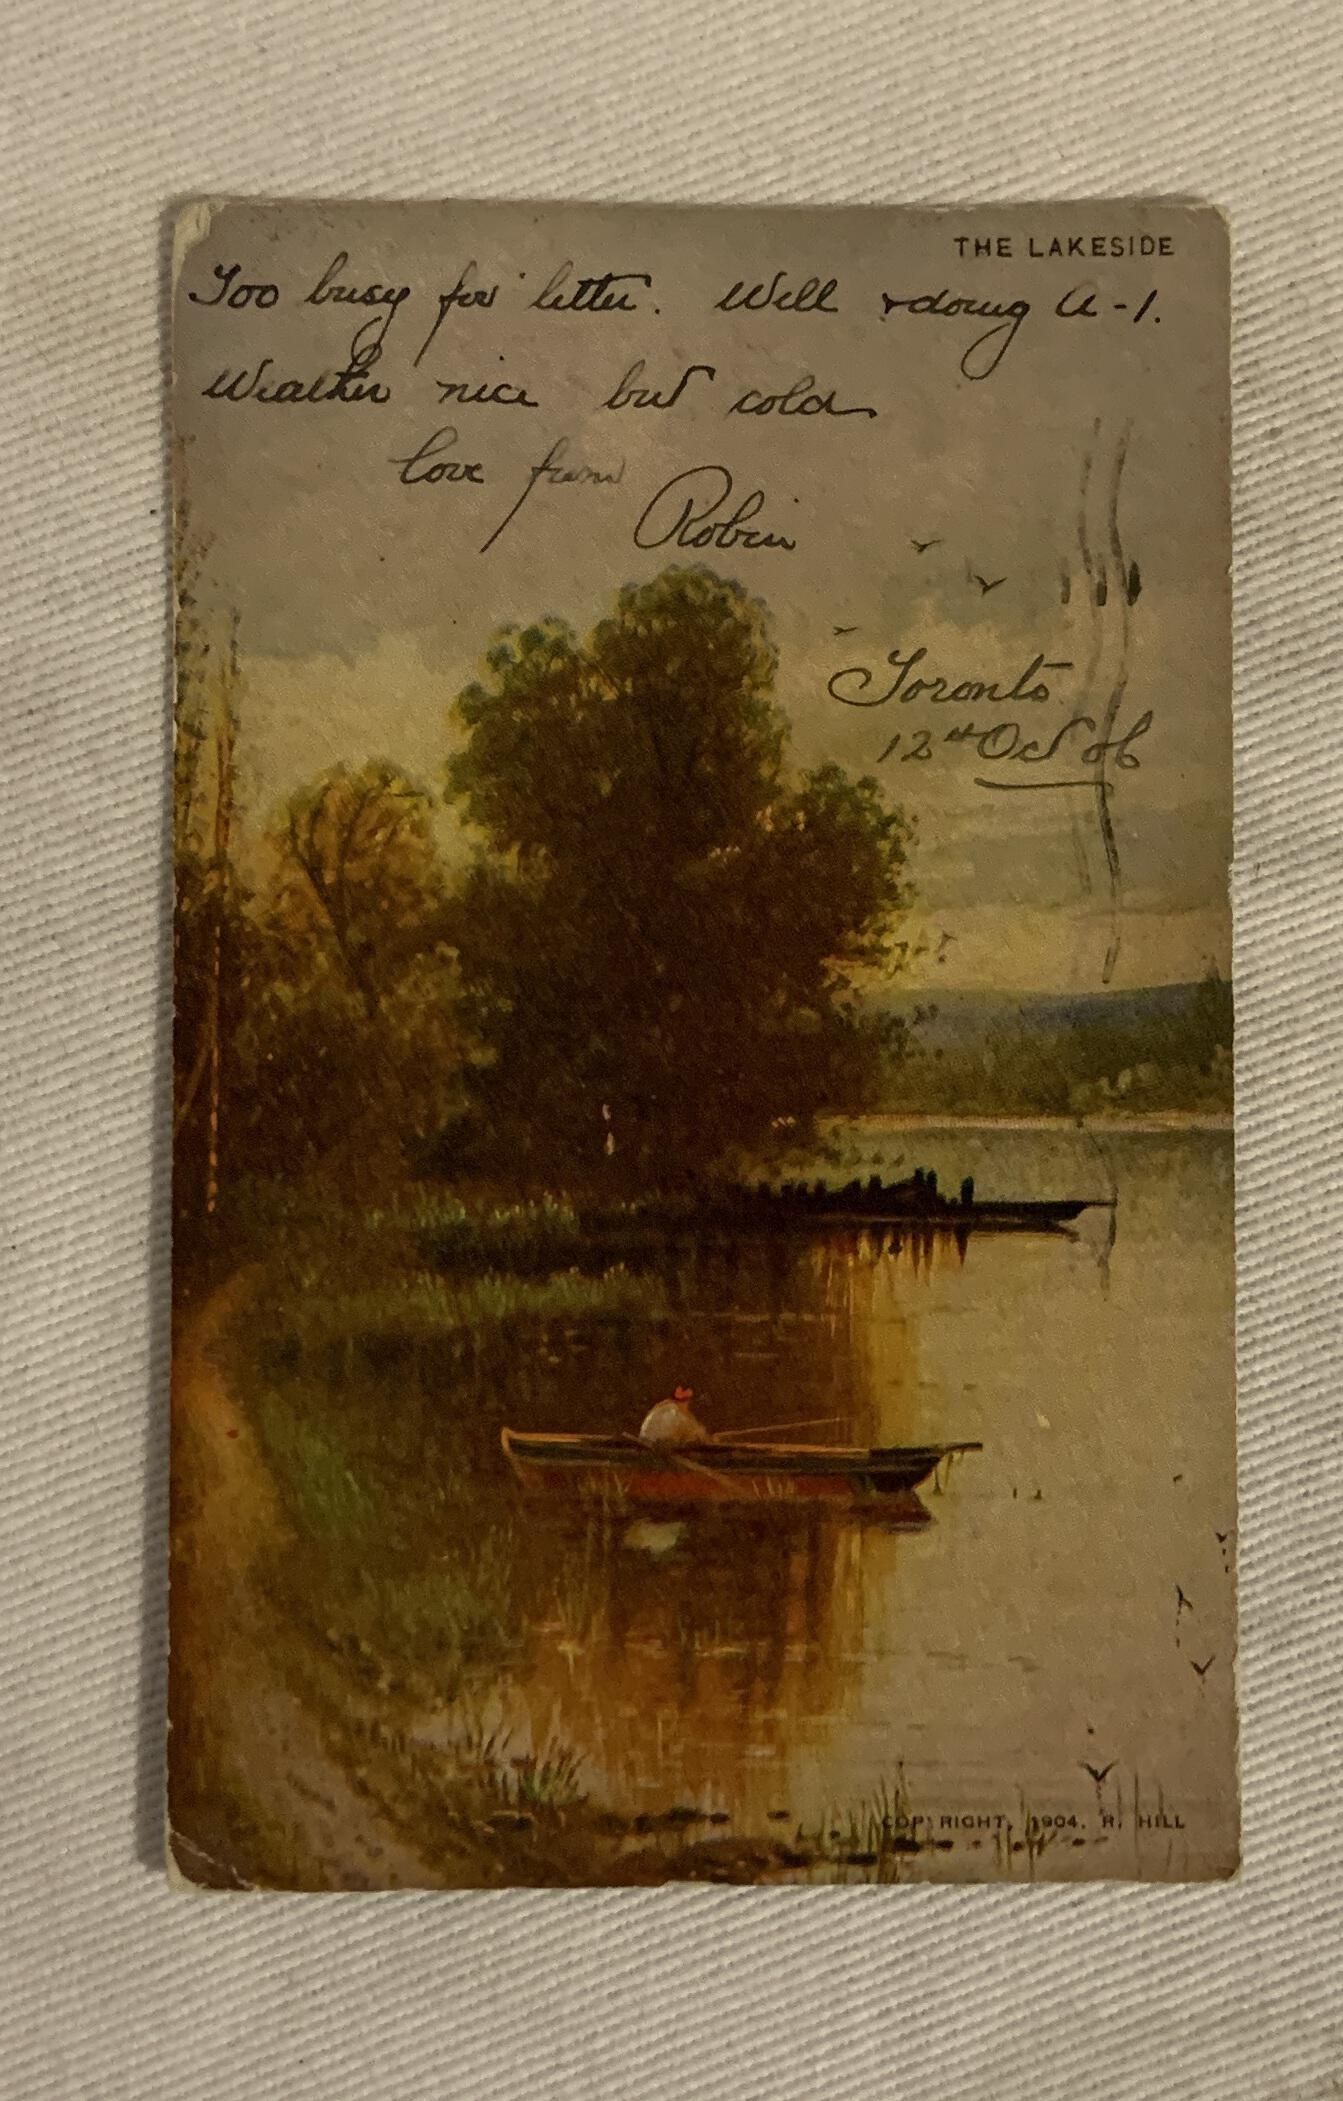 THE LAKESIDE
Too busy for letter. Well & doing A-1.
Weather nice but cold
love from
Robin
Toronto
12th Oct 06
COPYRIGHT, 1904, R. HILL